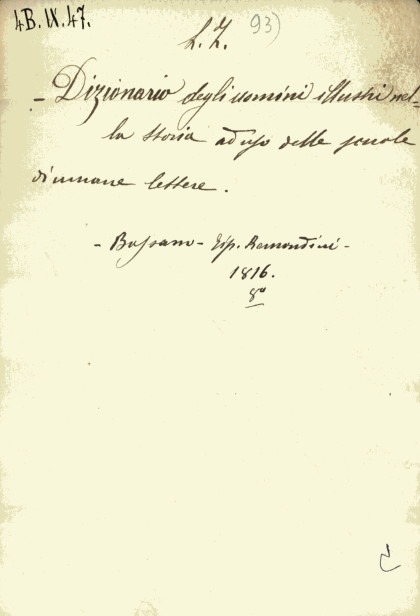 4B. IX. 47.
L. Z. 93)
- Dizionario degli uomini illustri nel=
la storia ad uso delle scuole
di umane lettere.
- Bassano - Tip. Remondini -
1816.
8°